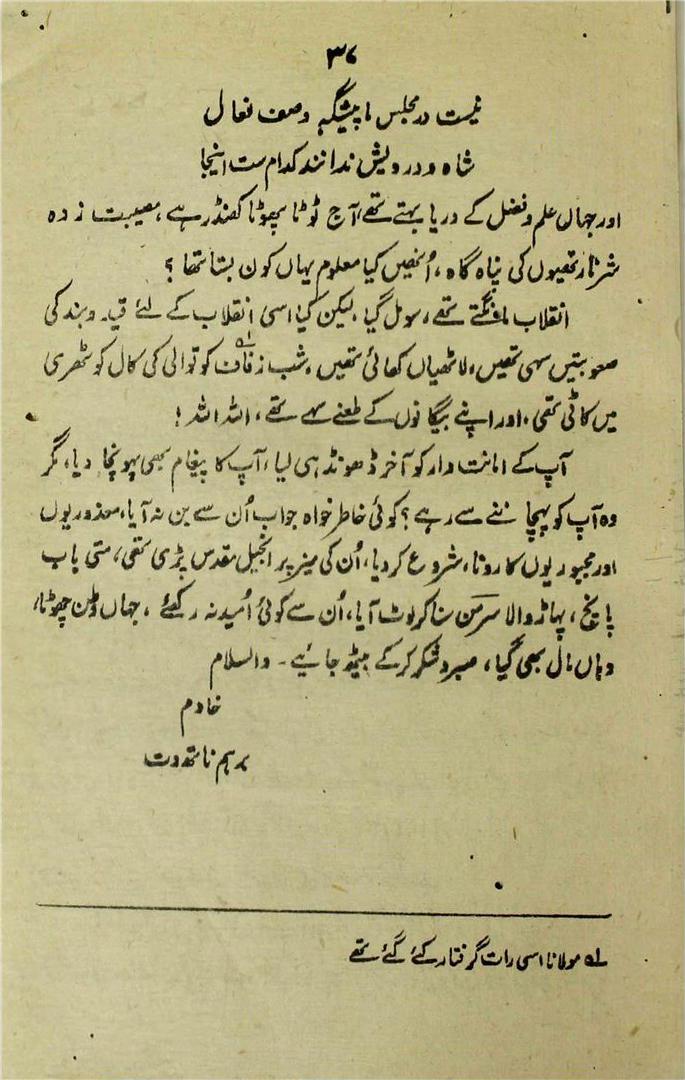 ۳۷
نیست در مجلس ما پیشگہ و صف نعال
شاہ و درویش ندانند کدام ست اینجا
اور جہاں علم و فضل کے دریا بہتے تھے، آج ٹوٹا پھوٹا کھنڈر ہے، مصیبت زدہ
شرنارتھیوں کی پناہ گاہ، اُنھیں کیا معلوم یہاں کون بستا تھا؟
انقلاب مانگتے تھے، سو مل گیا، لیکن کیا اسی انقلاب کے لئے قید و بند کی
صعوبتیں سہی تھیں، لاٹھیاں کھائی تھیں، شب زفاف ۱؎ کو توالی کی کال کوٹھری
میں کاٹی تھی، اور اپنے بیگانوں کے طعنے سہے تھے، اللہ اللہ!
آپ کے امانت دار کو آخر ڈھونڈ ہی لیا، آپ کا پیغام بھی پہونچا دیا، مگر
وہ آپ کو پہچاننے سے رہے؟ کوئی خاطر خواہ جواب اُن سے بن نہ آیا، معذوریوں
اور مجبوریوں کا رونا، شروع کر دیا، اُن کی میز پر انجیل مقدس پڑی تھی، متی باب
پانچ، پہاڑ والا سرمن سنا کر لوٹ آیا، اُن سے کوئی اُمید نہ رکھئے، جہاں وطن چھوٹا،
وہاں مال بھی گیا، صبر و شکر کر کے بیٹھ جائیے۔ والسلام
خادم
برہم ناتھ دت
۱؎ مولانا اسی رات گرفتار کئے گئے تھے